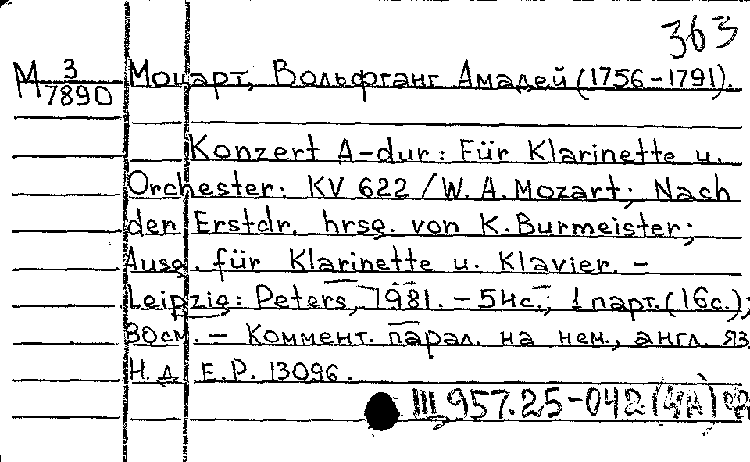 363
М 3
7890
Моцарт, Вольфганг Амадей (1756-1791).
Konzert A-dur: Für Klarinette u.
Orchester: KV 622 / W. A. Mozart; Nach
den Erstdr. hrsg. von K. Burmeister;
Ausg. für Klarinette u. Klavier. –
Leipzig: Peters, 1981. – 54 с.; 1 парт. (16 с.);
30 см. – Коммент. парал. на нем., англ. яз
Н. д. E.P. 13096.
III 957.25-042(4А)